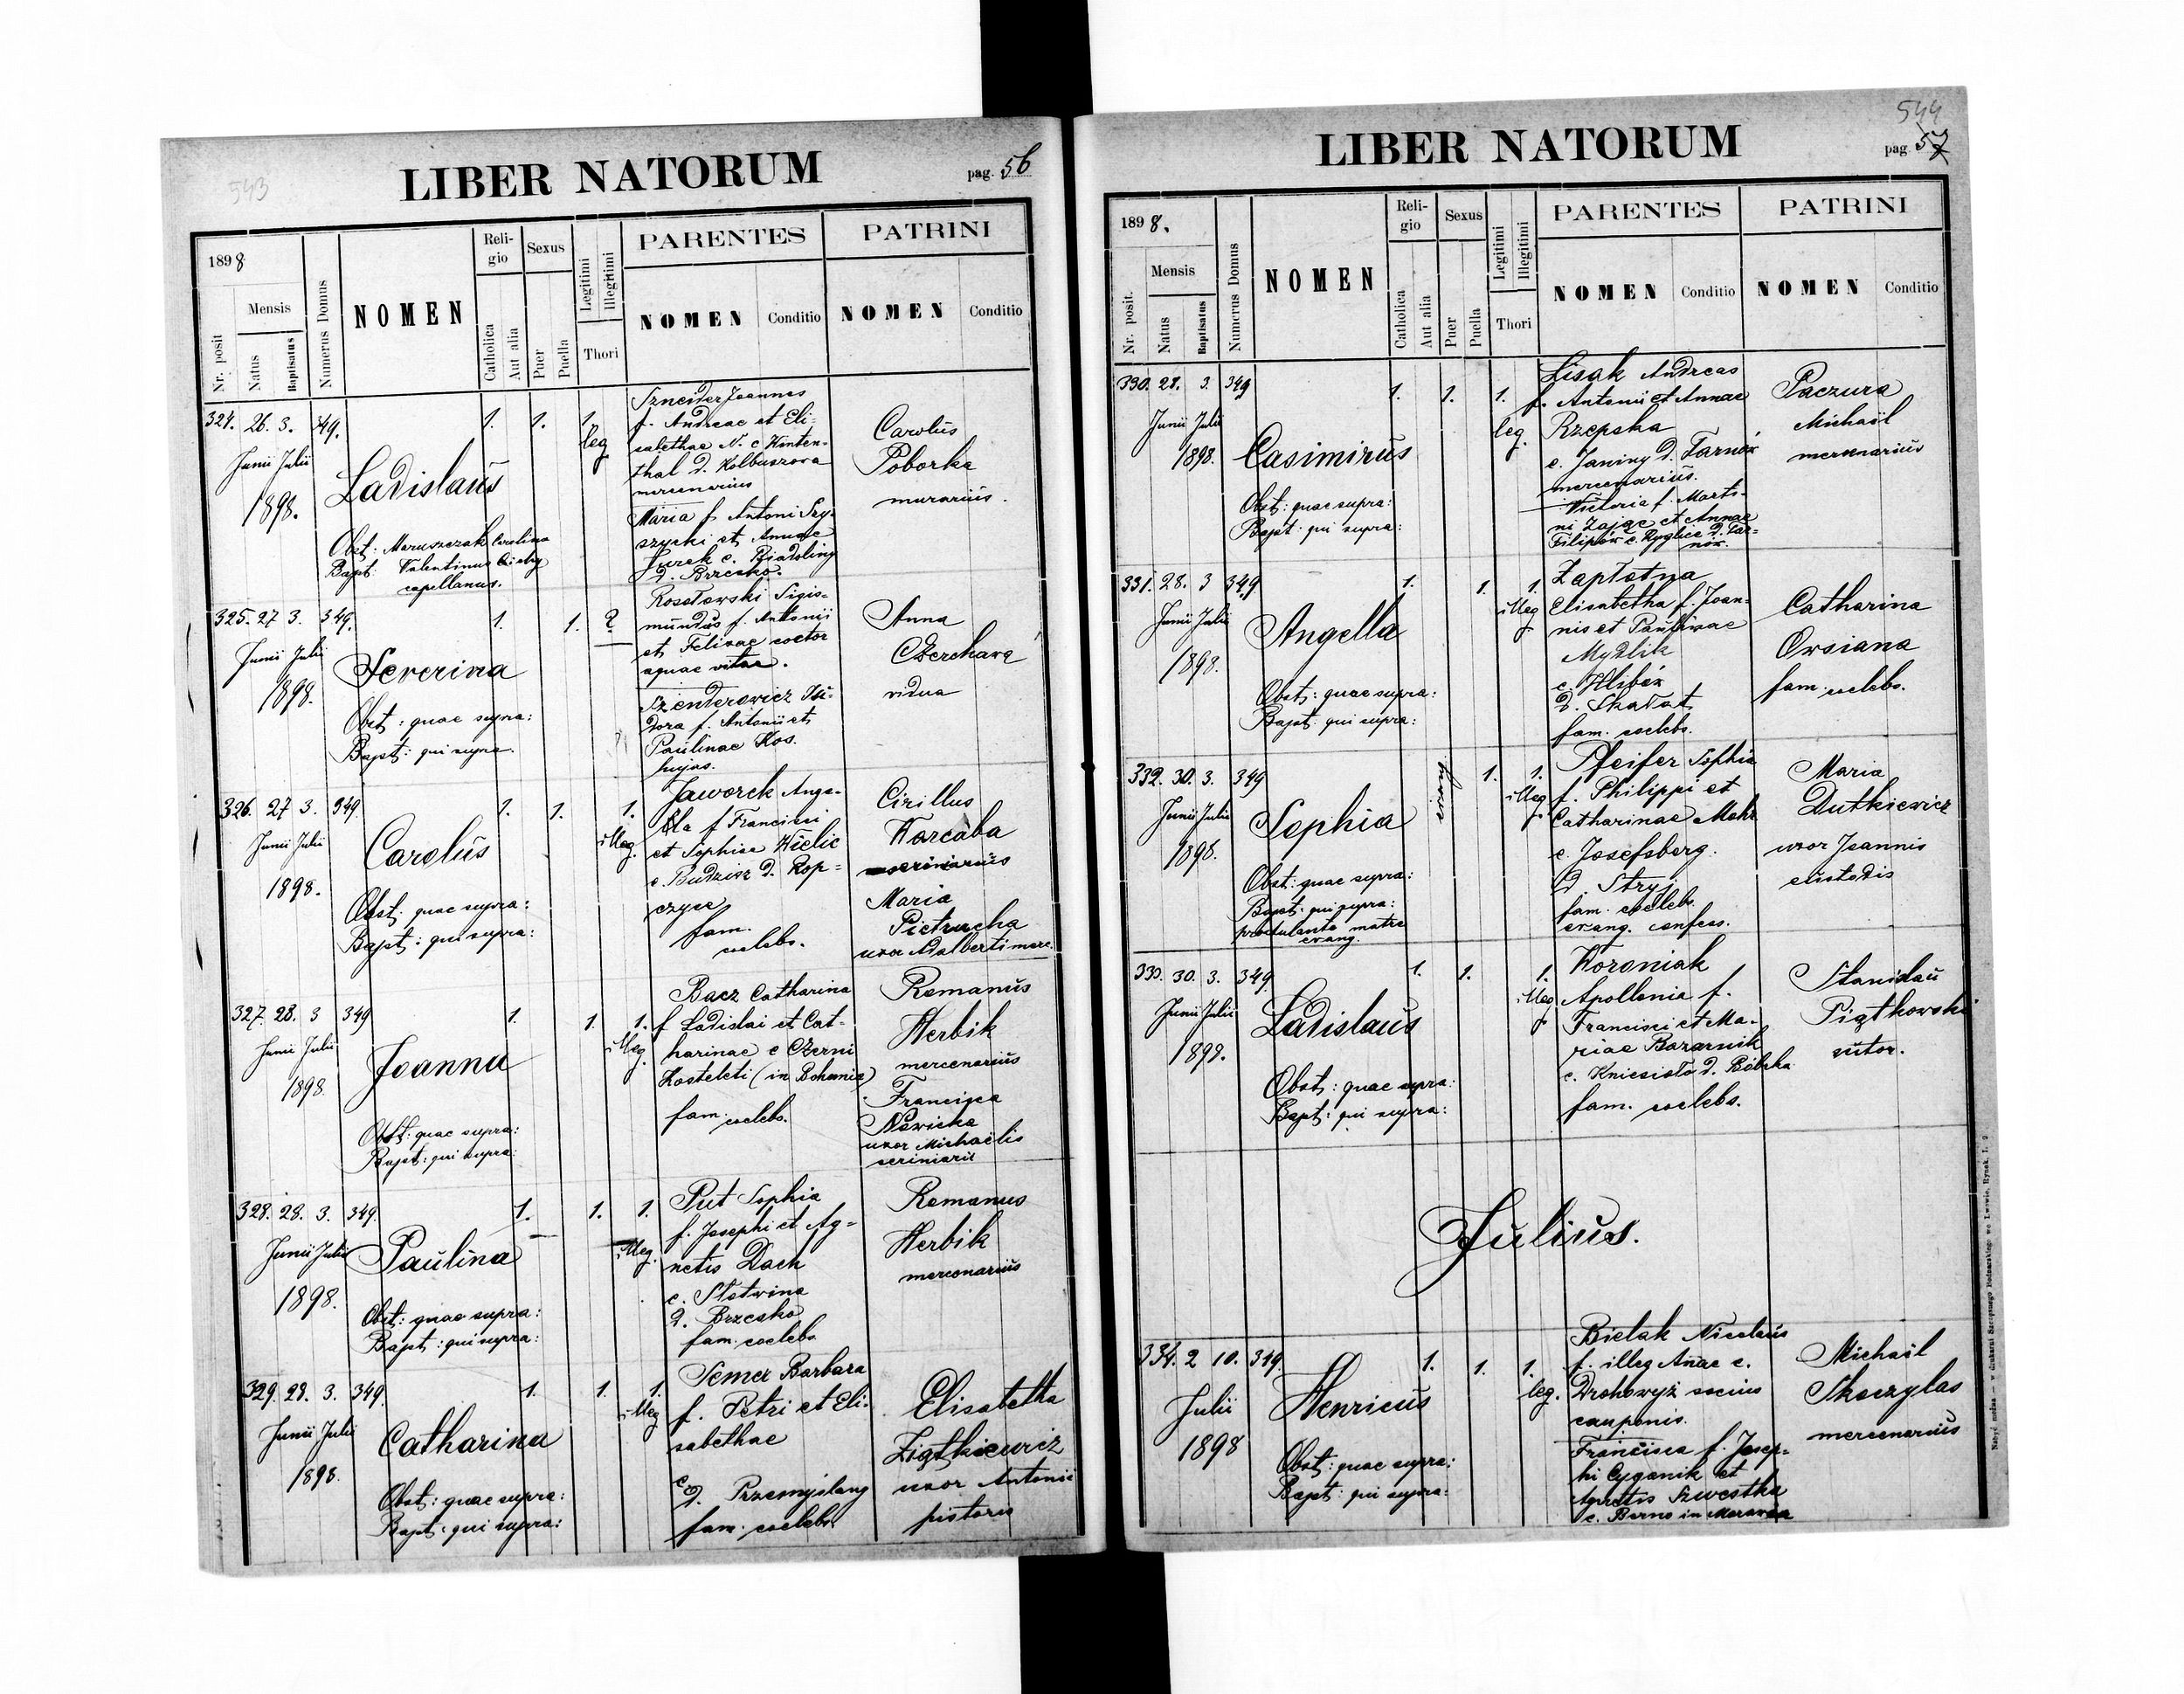 543
LIBER NATORUM
pag. 56
1898
Nr. posit
Mensis
Natus
Baptisatus
Numerus Domus
NOMEN
Religio
Catholica
Aut alia
Sexus
Puer
Puella
Legitimi
Illegitimi
Thori
PARENTES
NOMEN
Conditio
PATRINI
NOMEN
Conditio
324. 26. 3. 349. 1. 1. 1.
Junii Julii
1898.
Ladislaus
Obst: Maruszczak Carolina
Bapt: Valentinus Cichy
capellanus.
leg
Szneider Joannes
f. Andreae et Eli-
sabethae N. e Winten-
thal d. Kolbuszowa
mercenarius
Maria f. Antoni Szy-
szycki et Annae
Jurek e. Biadoliny
d. Brzesko.
Carolus
Poborka
murarius.
325. 27 3. 349. 1. 1. ?
Junii Julii
1898.
Severina
Obst: quae supra:
Bapt: qui supra.
Rosołowski Sigis-
mundus f. Antonii
et Felixae coctor
aquae vitae.
Szenderowicz Isi-
dora f. Antonii et
Paulinae Kos.
hujas.
Anna
Czerchawa
vidua
326. 27 3. 349. 1. 1. 1.
Junii Julii
1898.
Carolus
Obst: quae supra:
Bapt: qui supra:
illeg.
Jaworek Ange-
lla f Francisci
et Sophiae Wielic
e. Budzisz d. Rop-
czyce
fam.
coelebs.
Cirillus
Warcaba
scriniarius
Maria
Pietrucha
uxor Adalberti merc.
327. 28. 3 349 1. 1. 1.
Junii Julii
1898.
Joanna
Obst: quae supra:
Bapt: qui supra:
illeg.
Bacz Catharina
f Ladislai et Cat-
harinae e Czerni
Kosteleti (in Bohemia)
fam. coelebs.
Romanus
Herbik
mercenarius
Francisca
Nawicka
uxor Michaëlis
scriniarii
328. 28. 3. 349. 1. 1. 1.
Junii Julii
1898.
Paulina
Obst: quae supra:
Bapt: qui supra:
illeg.
Put Sophia
f. Josephi et Ag-
netis Dach
e. Słotwina
d. Brzesko
fam. coelebs.
Romanus
Herbik
mercenarius
329. 29. 3. 349. 1. 1. 1.
Junii Julii
1898.
Catharina
Obst: quae supra:
Bapt: qui supra:
illeg
Semer Barbara
f. Petri et Eli-
sabethae
e d. Przemyślany
fam. coelebs.
Elisabetha
Ziątkiewicz
uxor Antonii
pistoris
544
LIBER NATORUM
pag. 57
1898.
Nr. posit.
Mensis
Natus
Baptisatus
Numerus Domus
NOMEN
Religio
Catholica
Aut alia
Sexus
Puer
Puella
Legitimi
Illegitimi
Thori
PARENTES
NOMEN
Conditio
PATRINI
NOMEN
Conditio
330. 28. 3. 349 1. 1. 1.
Junii Julii
1898.
Casimirus
Obst: quae supra:
Bapt: qui supra:
leg.
Lisak Andreas
f. Antonii et Annae
Rzepska
e. Janiny d. Tarnów
mercenarius.
Victoria f. Marti-
ni Zając et Annae
Filipów e. Ryglice d. Tar-
nów.
Paczura
Michaël
mercenarius
331. 28. 3 349. 1. 1. 1.
Junii Julii
1898.
Angella
Obst: quae supra:
Bapt: qui supra:
illeg
Zapłotna
Elisabetha f. Joan-
nis et Paulinae
Myzlik
e. Hlibów
d. Skałat
fam. coelebs.
Catharina
Owsiana
fam. coelebs.
332. 30. 3. 349 evang 1. 1.
Junii Julii
1898.
Sophia
Obst: quae supra:
Bapt: qui supra:
postulante matre
evang.
illeg
Pfeifer Sophia
f. Philippi et
Catharinae Mohr
e. Josefsberg.
d. Stryj
fam. coelebs.
evang. confess.
Maria
Dutkiewicz
uxor Joannis
custodis
333. 30. 3. 349. 1. 1. 1.
Junii Julii
1898.
Ladislaus
Obst: quae supra:
Bapt: qui supra:
illeg
Woroniak
Apollonia f.
Francisci et Ma-
riae Bazarnik
e. Kniesioło d. Bóbrka
fam. coelebs.
Stanislaü
Piątkowski
sutor.
Julius.
334. 2 10. 349. 1. 1. 1.
Julii
1898
Henricus
Obst: quae supra:
Bapt: qui supra:
leg.
Bielak Nicolaus
f. illeg Anae e.
Drohowyż socius
cauponis.
Francisca f. Josep-
hi Cyganik et
Agnetis Szwestka
e. Berno in Moravia
Michaël
Skoczylas
mercenarius